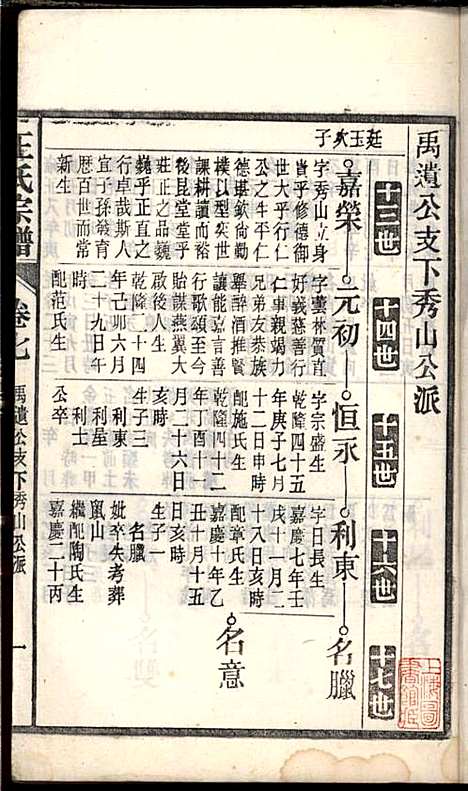 禹遺公支下秀山公派
十三世
十四世
十五世
十六世
十七世
廷玉次子
嘉榮
元初
恒永
利東
名臘
字秀山立身
貴乎修德御
世大乎行仁
公之生平仁
德堪欽尚勤
樸以型奕世
課耕讀而裕
後昆堂堂乎
莊正之品巍
巍乎正直之
行卓哉斯人
宜乎孫發育
歷百世而常
新生
字蕓林質直
好義慈善行
仁事親竭力
兄弟友恭族
舉辭酒推賢
讓能嘉言善
行歌頌至今
貽謀燕翼大
啟後人生
乾隆二十四
年己卯六月
二十九日午
時
配范氏生
字宗盛生
乾隆四十五
年庚子七月
十二日申時
配施氏生
乾隆四十二
年丁酉十一
月二十六日
亥時
生子三
利東
利星
利士
公卒
字日長生
嘉慶七年壬
戌十一月二
十八日亥時
配章氏生
嘉慶十年乙
丑十月十五
日亥時
生子一
名臘
妣卒失考葬
鼠山
繼配陶氏生
嘉慶二十丙
名意
王氏宗譜
卷七
禹遺公支下秀山公派
一
上海圖
書館藏